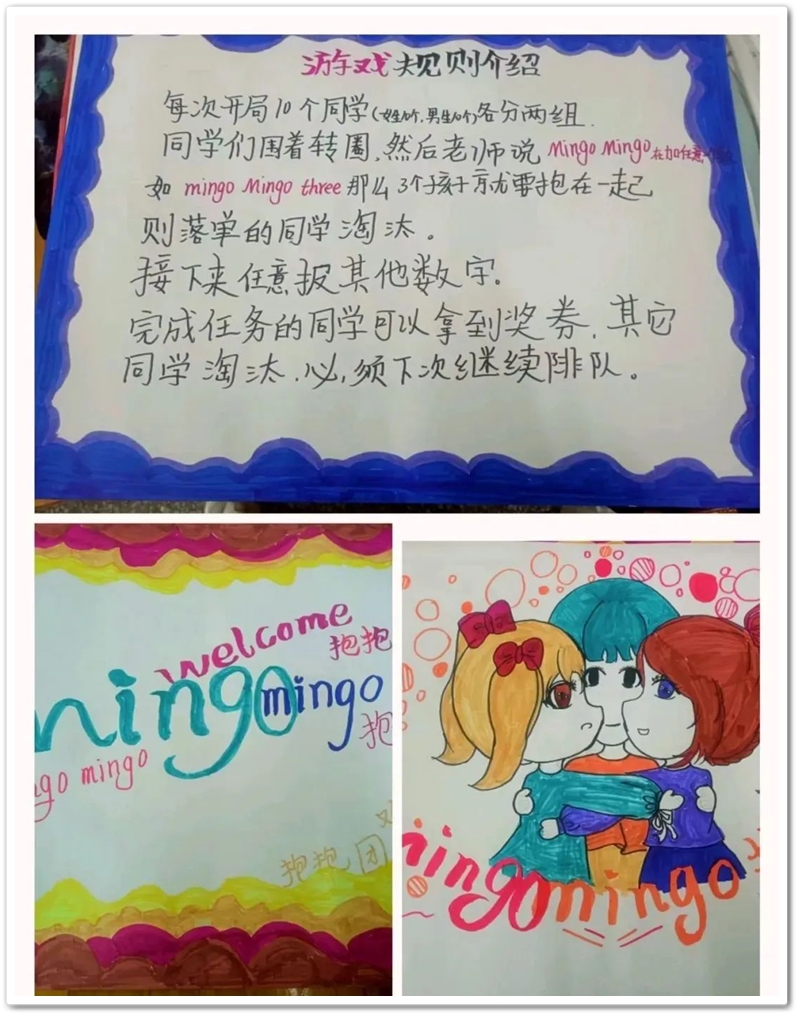 游戏规则介绍
每次开局10个同学(女生个,男生个)各分两组.
同学们围着转圈,然后老师说 mingo Mingo 在加任意
如 mingo Mingo three 那么 3个孩子就要抱在一起
则落单的同学淘汰。
接下来任意报其他数字.
完成任务的同学可以拿到奖券,其它
同学淘汰.必须下次继续排队。
welcome
抱抱
mingo
mingo
抱
ngo mingo
抱抱 团
mingo mingo